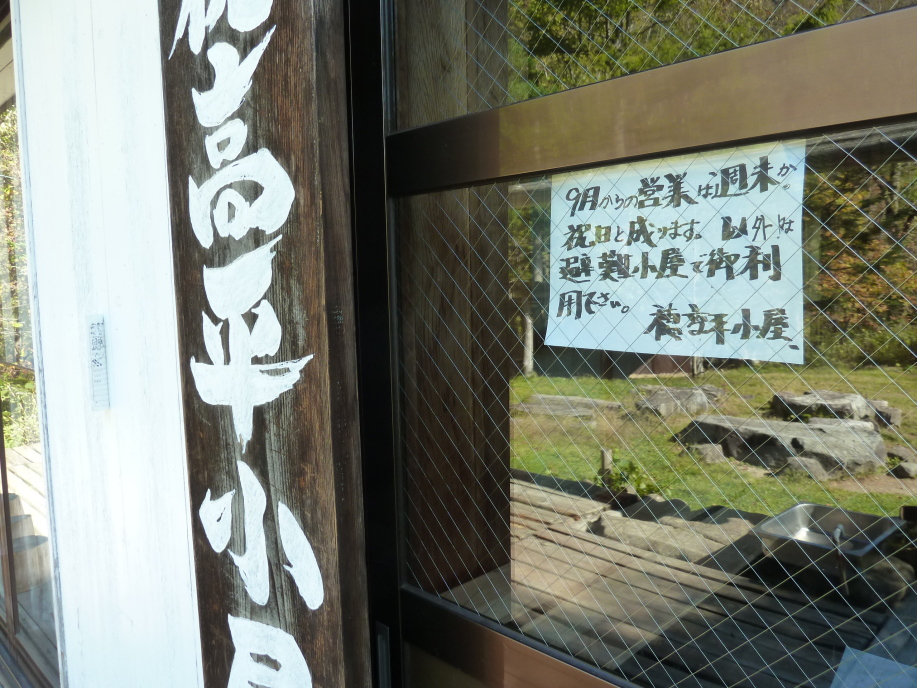 穂高平小屋
9月からの営業は週末か
祝日と成ります。以外は
避難小屋で御利
用下さい。 穂高平小屋、